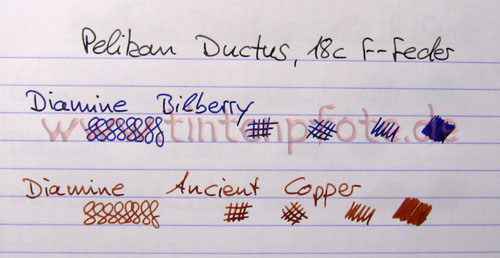 Pelikan Ductus, 18c F-Feder
Diamine Bilberry
www.tintenpfote.de
Diamine Ancient Copper